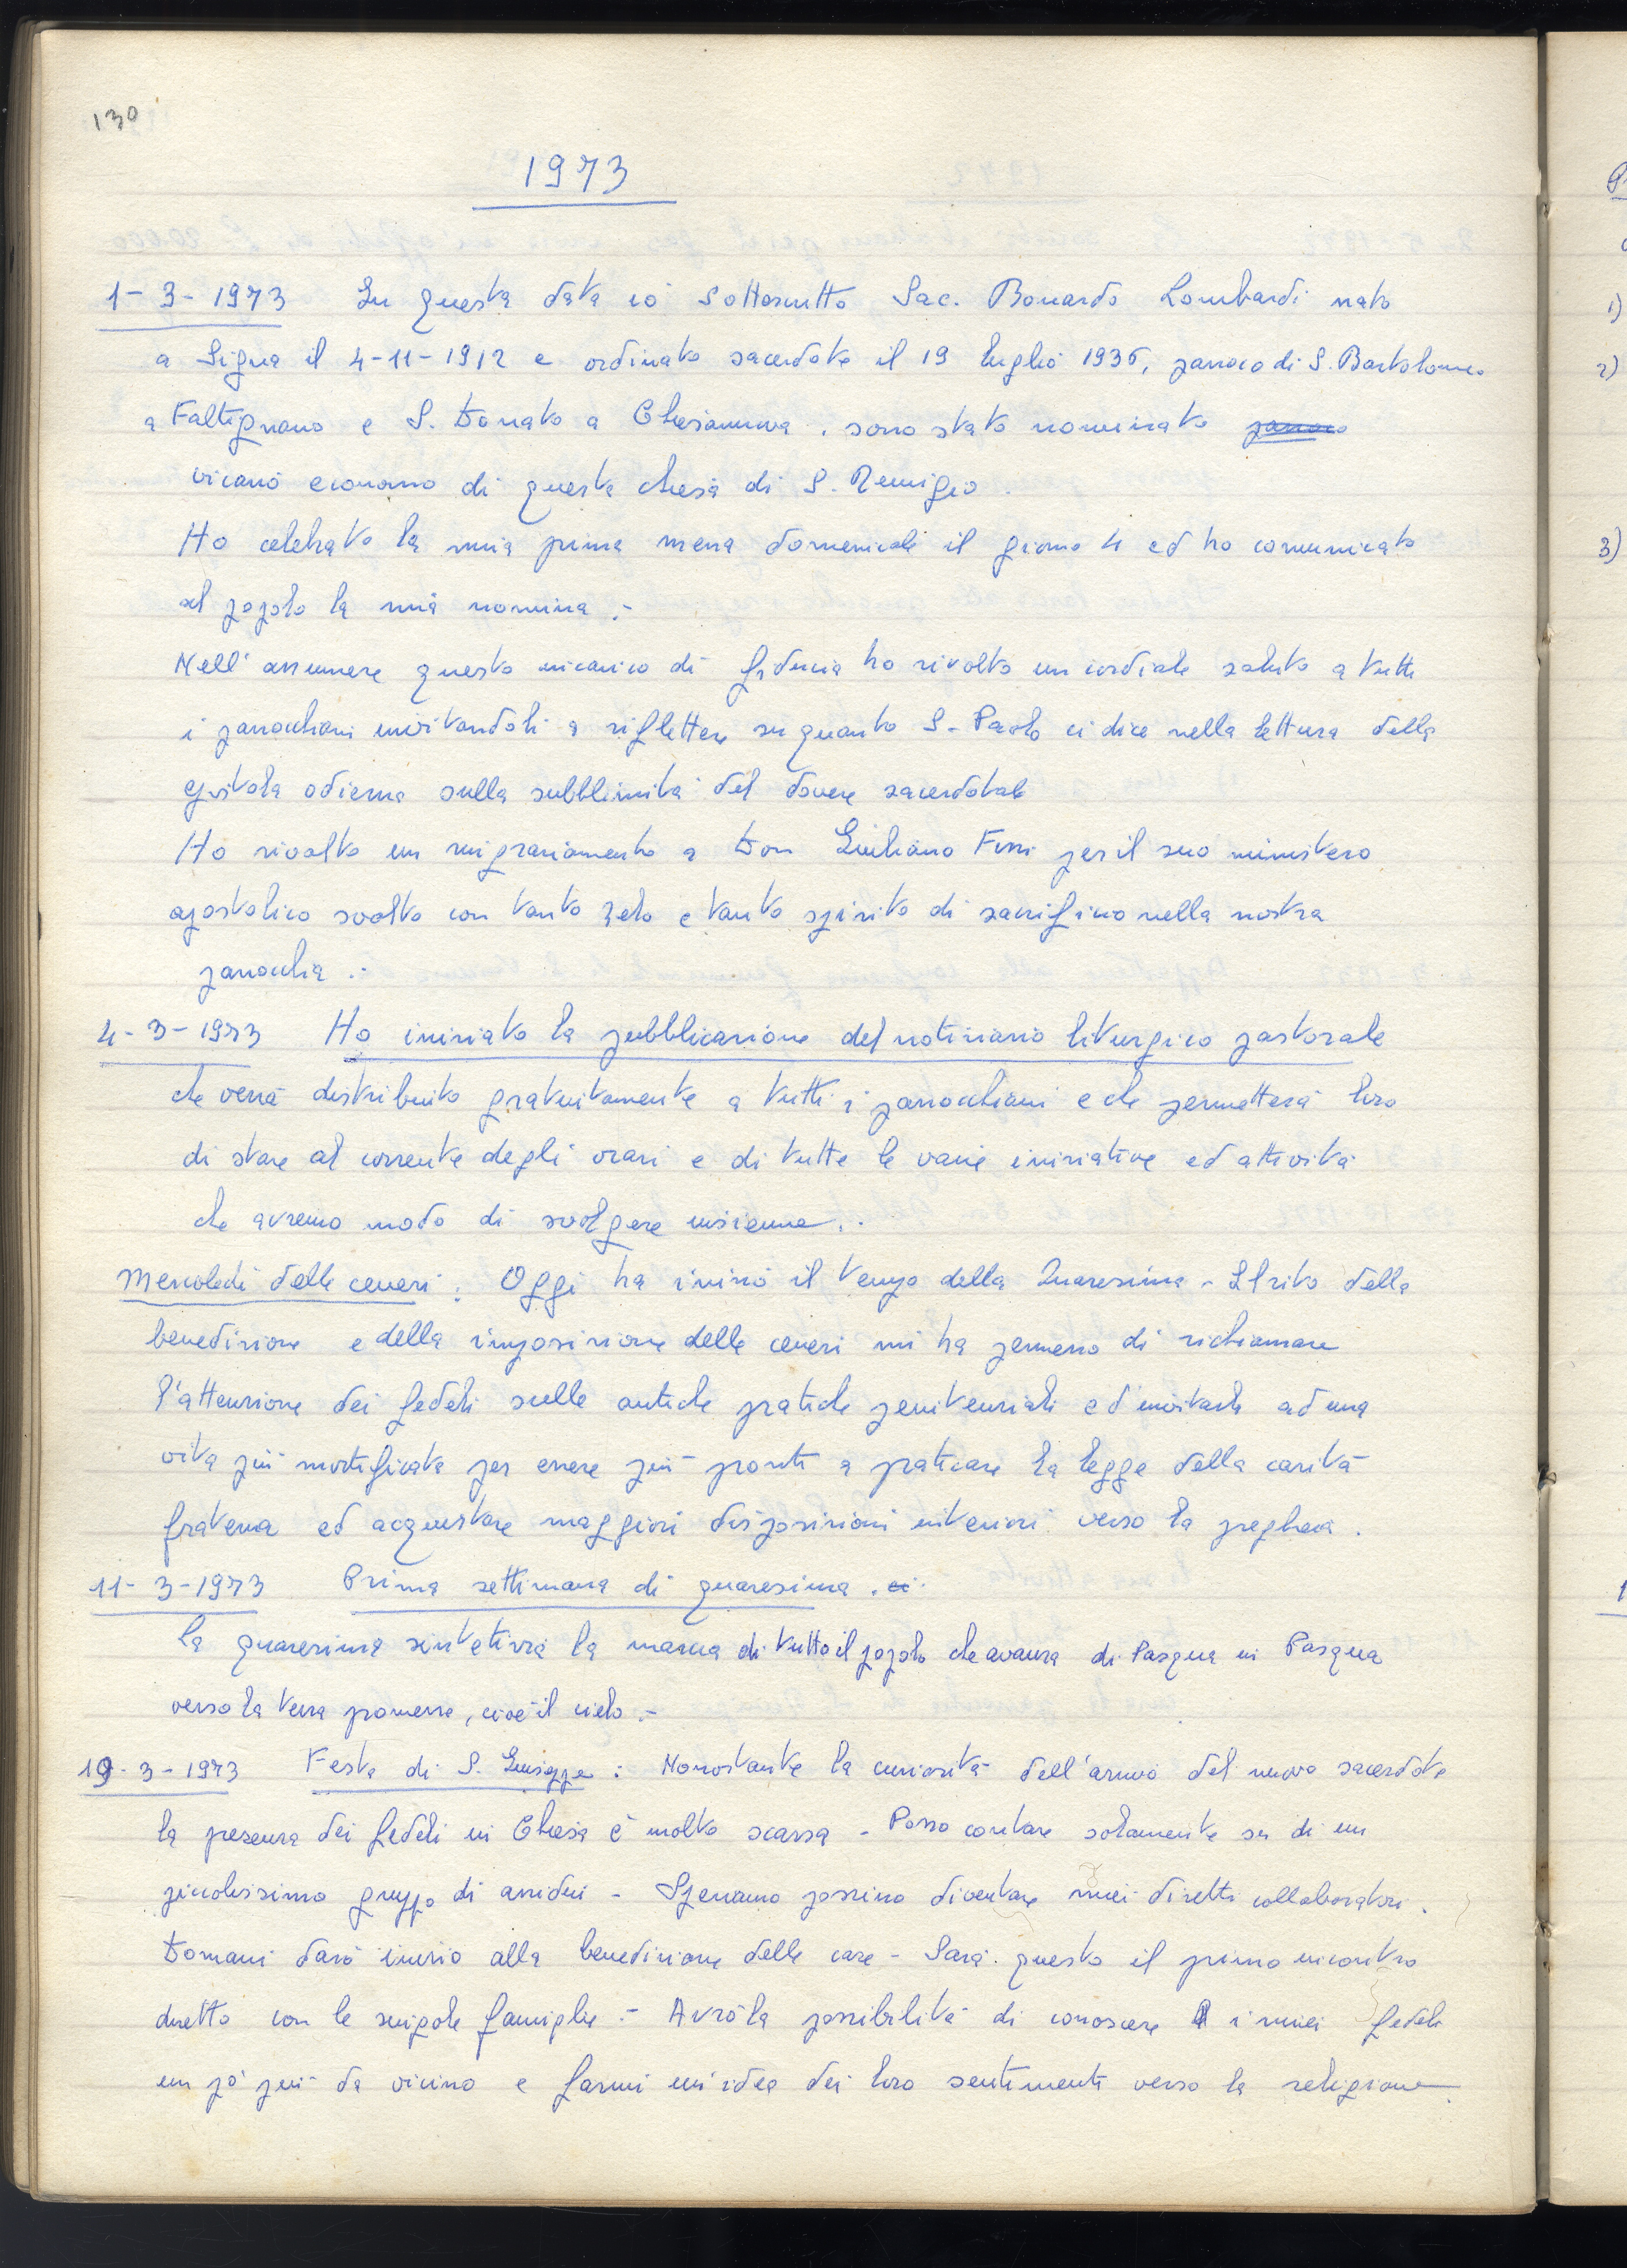 130
1973
1-3-1973 In questa data io sottoscritto Sac. Bonardo Lombardi nato
a Signa il 4-11-1912 e ordinato sacerdote il 19 luglio 1936, parroco di S. Bartolomeo
a Faltignano e S. Donato a Chiesanuova, sono stato nominato parroco
vicario economo di questa chiesa di S. Remigio.
Ho celebrato la mia prima messa domenicale il giorno 4 ed ho comunicato
al popolo la mia nomina.-
Nell'assumere questo incarico di fiducia ho rivolto un cordiale saluto a tutti
i parrocchiani invitandoli a riflettere su quanto S. Paolo ci dice nella lettura della
epistola odierna sulla subblimità del dovere sacerdotale
Ho rivolto un ringraziamento a Don Giuliano Fissi per il suo ministero
apostolico svolto con tanto zelo e tanto spirito di sacrificio nella nostra
parrocchia.-
4-3-1973 Ho iniziato la pubblicazione del notiziario liturgico pastorale
che verrà distribuito gratuitamente a tutti i parrocchiani e che permetterà loro
di stare al corrente degli orari e di tutte le varie iniziative ed attività
che avremo modo di svolgere insieme..
Mercoledì delle ceneri: Oggi ha inizio il tempo della Quaresima - Il rito della
benedizione e della imposizione delle ceneri mi ha permesso di richiamare
l'attenzione dei fedeli sulle antiche pratiche penitenziali ed invitarli ad una
vita più mortificata per essere più pronti a praticare la legge della carità
fraterna ed acquistare maggiori disposizioni interiori verso la preghiera.
11-3-1973 Prima settimana di quaresima.
la quaresima sintetizza la marcia di tutto il popolo che avanza di Pasqua in Pasqua
verso la terra promessa, cioè il cielo.-
19-3-1973 Festa di S. Giuseppe: Nonostante la curiosità dell'arrivo del nuovo sacerdote
la presenza dei fedeli in Chiesa è molto scarsa - Posso contare solamente su di un
piccolissimo gruppo di assidui - Speriamo possino diventare miei diretti collaboratori.
Domani darò inizio alla benedizione delle case - Sarà questo il primo incontro
diretto con le singole famiglie - Avrò la possibilità di conoscere i miei fedeli
un pò più da vicino e farmi un'idea dei loro sentimenti verso la religione.
1)
2)
3)